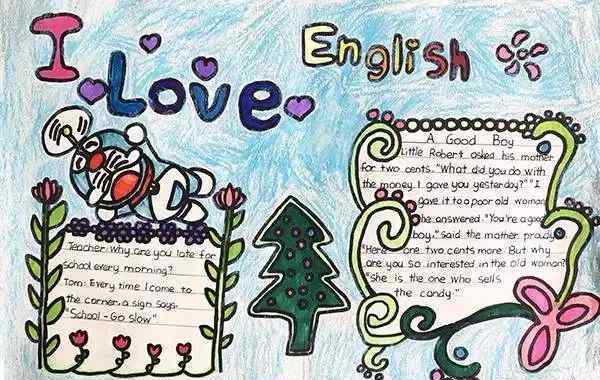 I Love English
Teacher: Why are you late for
school every morning?
Tom: Every time I come to
the corner, a sign says,
"School-Go slow".
A Good Boy
Little Robert asked his mother
for two cents. "What did you do with
the money I gave you yesterday?" "I
gave it to a poor old woman,
he answered. "You're a good
boy," said the mother proudly
"Here are two cents more. But why
are you so interested in the old woman?
"She is the one who sells
the candy."